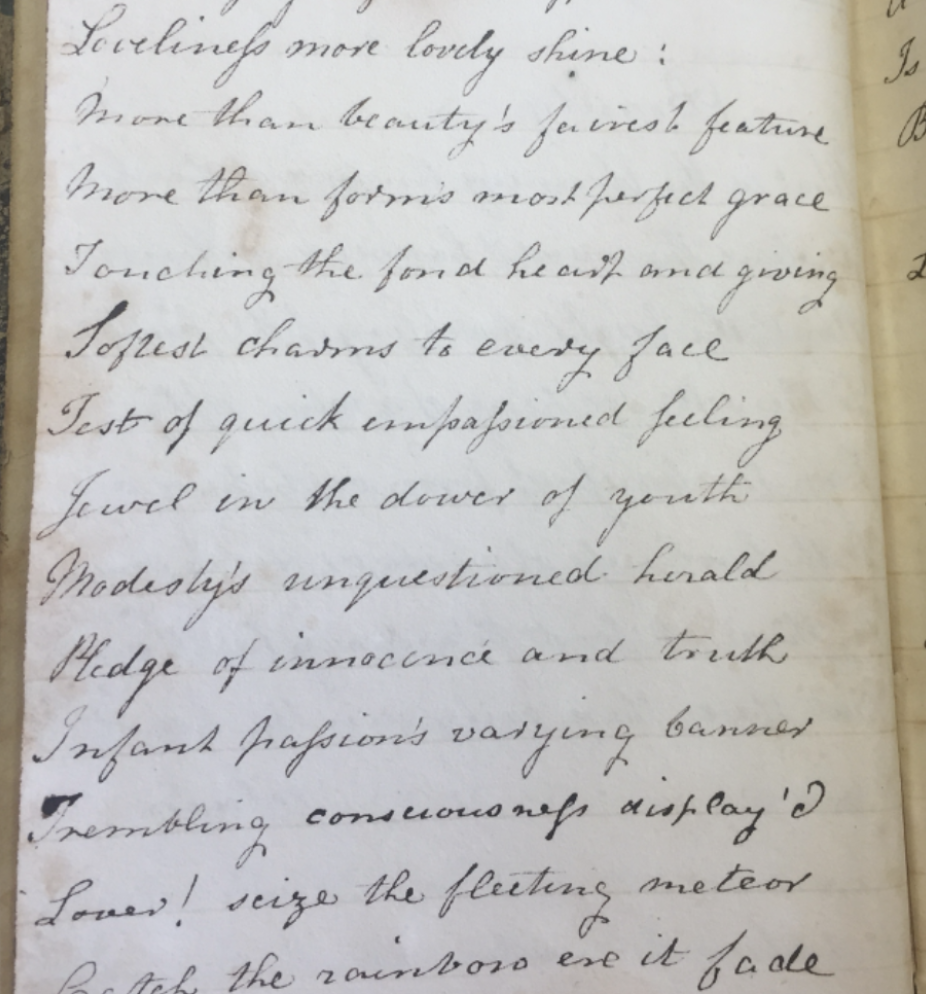 Loveliness more lovely shine:
More than beauty's fairest feature
More than form's most perfect grace
Touching the fond heart and giving
Softest charms to every face
Test of quick empassioned feeling
Jewel in the dower of youth
Modesty's unquestioned herald
Pledge of innocence and truth
Infant passion's varying banner
Trembling consciousness display'd
Lover! seize the fleeting meteor
Catch the rainbow ere it fade
Is